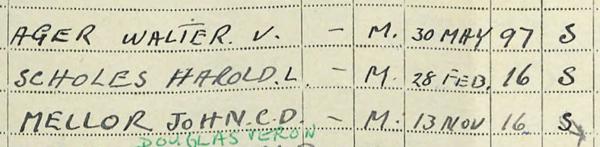 AGER WALTER. V. - M. 30 MAY 97 S
SCHOLES HAROLD. L - M. 28 FEB. 16 S
MELLOR JOHN. C. D. - M. 13 NOV 16 S
DOUGLAS VERON